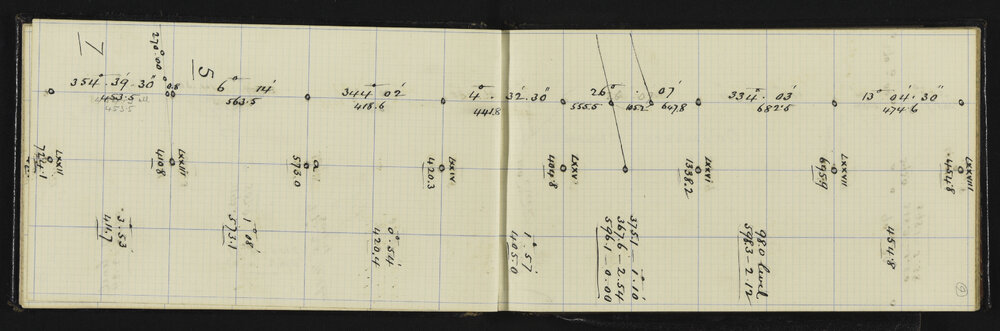 7
5
270°.00'
354°.39'.30"
453.5
453.5
0.8
6° 14'
563.5
344° 02'
418.6
4°. 32'.30"
441.8
26° 07'
555.5
1052
647.8
334°. 03'
682.5
13° 04'.30"
474.6
LXXII
724.1
LXXIII
410.8
a
573.0
LXXIV
420.3
LXXV
404.8
LXXVI
1338.2
LXXVII
695.9
LXXVIII
454.8
3°.53'
411.7
1°08'
573.1
0°.54'
420.4
1°.57'
405.0
375.1 - 1°.10'
367.6 - 2.54
596.1 - 0.00
98.0 level
598.3 - 2.12
454.8
9